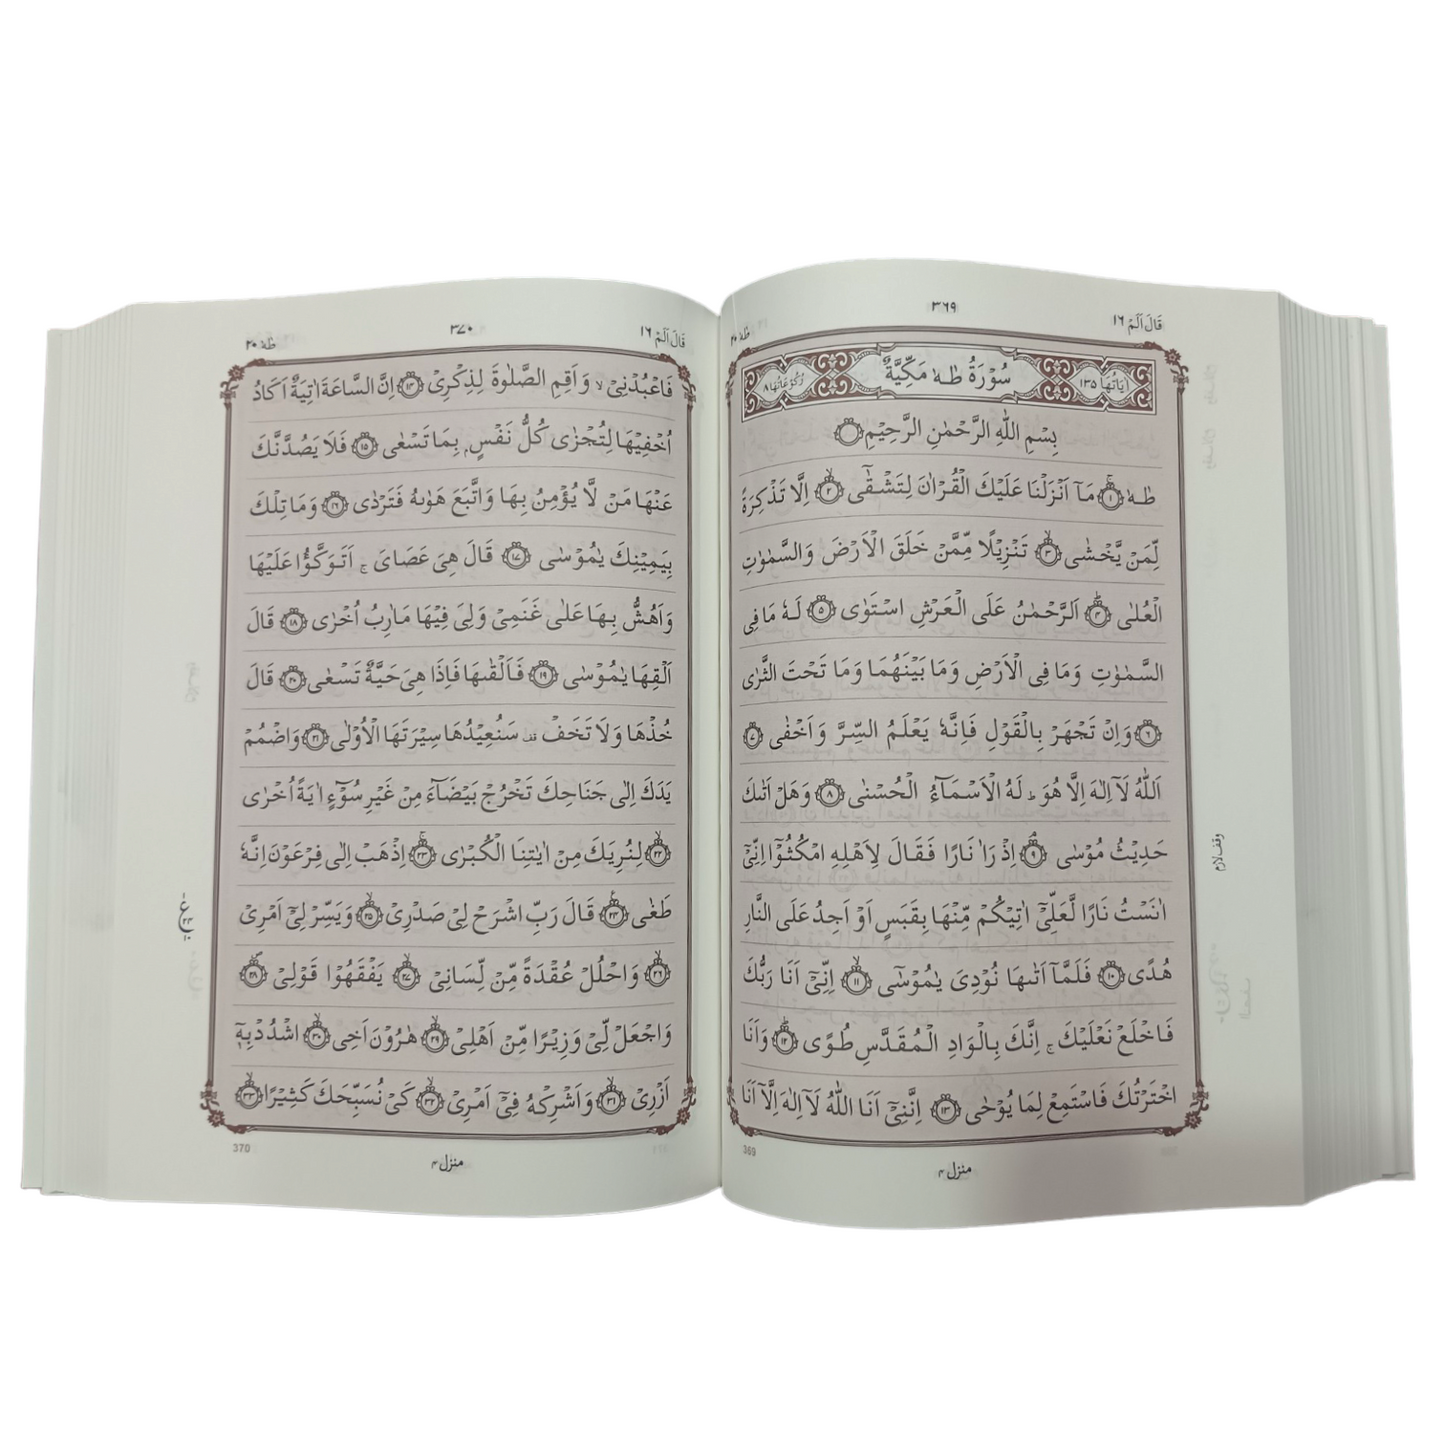 قَالَ اَلَمْ ١٦
٣٦٩
طٰهٰ ٢٠
اٰيَاتُهَا ١٣٥
سُوْرَةُ طٰهٰ مَكِّيَّةٌ
رُكُوْعَاتُهَا ٨
بِسْمِ اللّٰهِ الرَّحْمٰنِ الرَّحِيْمِ
طٰهٰ ١ مَآ اَنْزَلْنَا عَلَيْكَ الْقُرْاٰنَ لِتَشْقٰٓى ٢ اِلَّا تَذْكِرَةً
لِّمَنْ يَّخْشٰى ٣ تَنْزِيْلًا مِّمَّنْ خَلَقَ الْاَرْضَ وَالسَّمٰوٰتِ
الْعُلٰى ٤ اَلرَّحْمٰنُ عَلَى الْعَرْشِ اسْتَوٰى ٥ لَهٗ مَا فِى
السَّمٰوٰتِ وَمَا فِى الْاَرْضِ وَمَا بَيْنَهُمَا وَمَا تَحْتَ الثَّرٰى
٦ وَاِنْ تَجْهَرْ بِالْقَوْلِ فَاِنَّهٗ يَعْلَمُ السِّرَّ وَاَخْفٰى ٧
اَللّٰهُ لَآ اِلٰهَ اِلَّا هُوَ ؕ لَهُ الْاَسْمَآءُ الْحُسْنٰى ٨ وَهَلْ اَتٰىكَ
حَدِيْثُ مُوْسٰى ٩ اِذْ رَاٰ نَارًا فَقَالَ لِاَهْلِهِ امْكُثُوْٓا اِنِّىْٓ
اٰنَسْتُ نَارًا لَّعَلِّىْٓ اٰتِيْكُمْ مِّنْهَا بِقَبَسٍ اَوْ اَجِدُ عَلَى النَّارِ
هُدًى ١٠ فَلَمَّآ اَتٰىهَا نُوْدِىَ يٰمُوْسٰٓى ١١ اِنِّىْٓ اَنَا رَبُّكَ
فَاخْلَعْ نَعْلَيْكَ ۚ اِنَّكَ بِالْوَادِ الْمُقَدَّسِ طُوًى ١٢ وَاَنَا
اخْتَرْتُكَ فَاسْتَمِعْ لِمَا يُوْحٰى ١٣ اِنَّنِىْٓ اَنَا اللّٰهُ لَآ اِلٰهَ اِلَّآ اَنَا
وقف لازم
369
منزل ٤
قَالَ اَلَمْ ١٦
٣٧٠
طٰهٰ ٢٠
فَاعْبُدْنِىْ ۙ وَاَقِمِ الصَّلٰوةَ لِذِكْرِىْ ١٤ اِنَّ السَّاعَةَ اٰتِيَةٌ اَكَادُ
اُخْفِيْهَا لِتُجْزٰى كُلُّ نَفْسٍۭ بِمَا تَسْعٰى ١٥ فَلَا يَصُدَّنَّكَ
عَنْهَا مَنْ لَّا يُؤْمِنُ بِهَا وَاتَّبَعَ هَوٰىهُ فَتَرْدٰى ١٦ وَمَا تِلْكَ
بِيَمِيْنِكَ يٰمُوْسٰى ١٧ قَالَ هِىَ عَصَاىَ ۚ اَتَوَكَّؤُا عَلَيْهَا
وَاَهُشُّ بِهَا عَلٰى غَنَمِىْ وَلِىَ فِيْهَا مَاٰرِبُ اُخْرٰى ١٨ قَالَ
اَلْقِهَا يٰمُوْسٰى ١٩ فَاَلْقٰىهَا فَاِذَا هِىَ حَيَّةٌ تَسْعٰى ٢٠ قَالَ
خُذْهَا وَلَا تَخَفْ قف سَنُعِيْدُهَا سِيْرَتَهَا الْاُوْلٰى ٢١ وَاضْمُمْ
يَدَكَ اِلٰى جَنَاحِكَ تَخْرُجْ بَيْضَآءَ مِنْ غَيْرِ سُوْٓءٍ اٰيَةً اُخْرٰى
٢٢ لِنُرِيَكَ مِنْ اٰيٰتِنَا الْكُبْرٰى ٢٣ اِذْهَبْ اِلٰى فِرْعَوْنَ اِنَّهٗ
طَغٰى ٢٤ قَالَ رَبِّ اشْرَحْ لِىْ صَدْرِىْ ٢٥ وَيَسِّرْ لِىْٓ اَمْرِىْ
٢٦ وَاحْلُلْ عُقْدَةً مِّنْ لِّسَانِىْ ٢٧ يَفْقَهُوْا قَوْلِىْ ٢٨
وَاجْعَلْ لِّىْ وَزِيْرًا مِّنْ اَهْلِىْ ٢٩ هٰرُوْنَ اَخِى ٣٠ اشْدُدْ بِهٖٓ
اَزْرِىْ ٣١ وَاَشْرِكْهُ فِىْٓ اَمْرِىْ ٣٢ كَىْ نُسَبِّحَكَ كَثِيْرًا ٣٣
370
منزل ٤